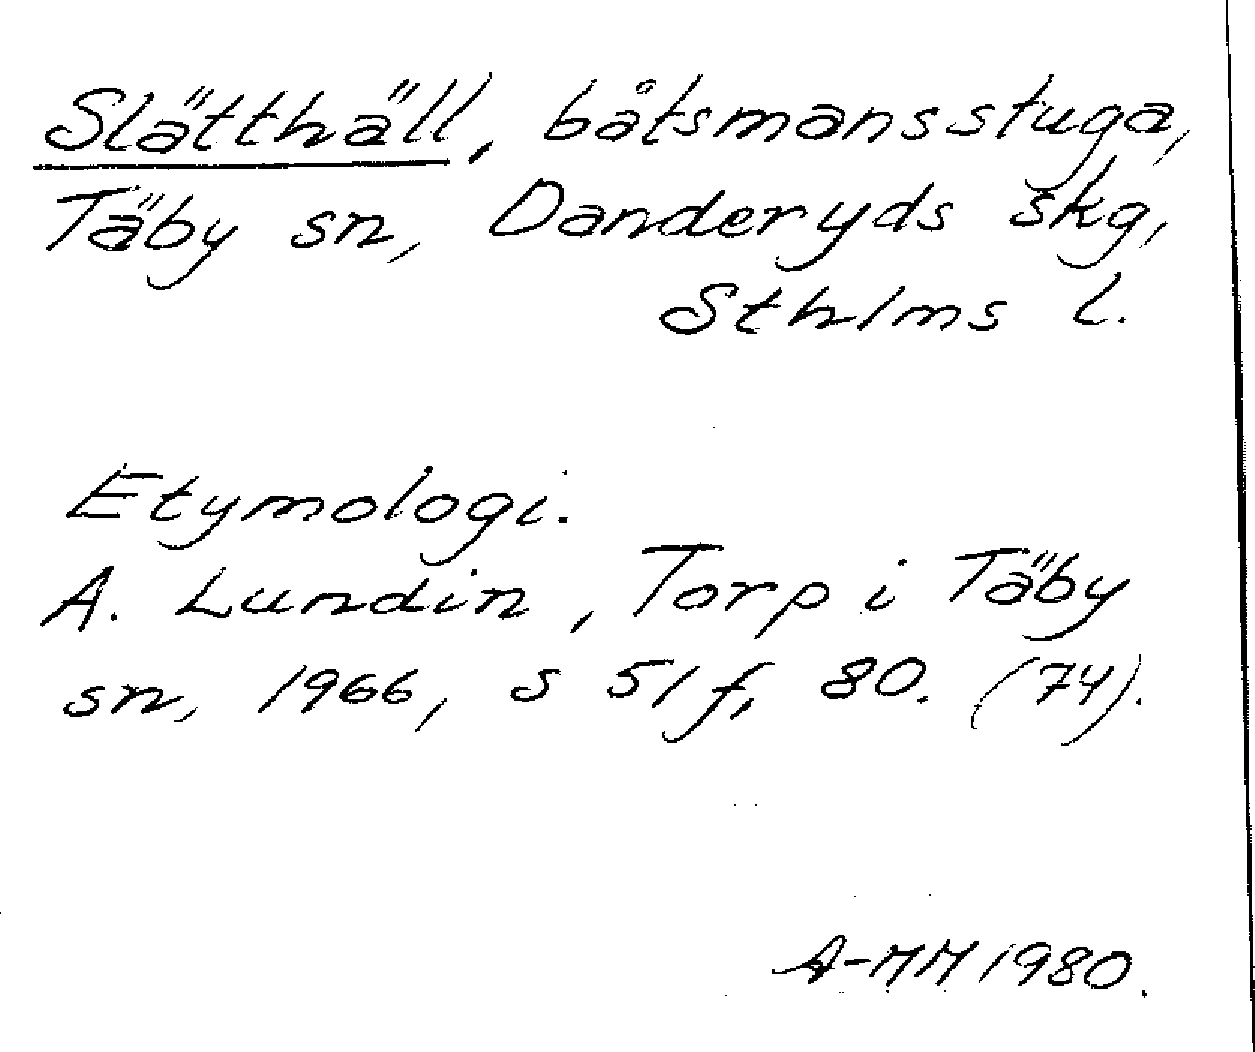 Slätthäll, båtsmansstuga,
Täby sn, Danderyds skg,
Sthlms l.
Etymologi.
A. Lundin, Torp i Täby
sn, 1966, s 51 f, 80. (74).
A-MM 1980.